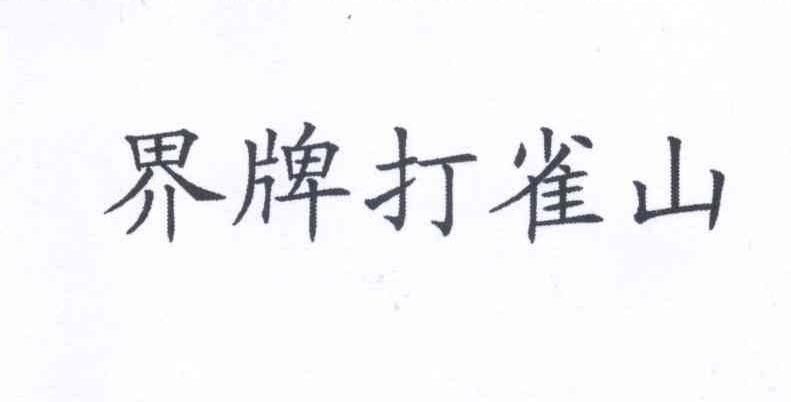 界牌打雀山